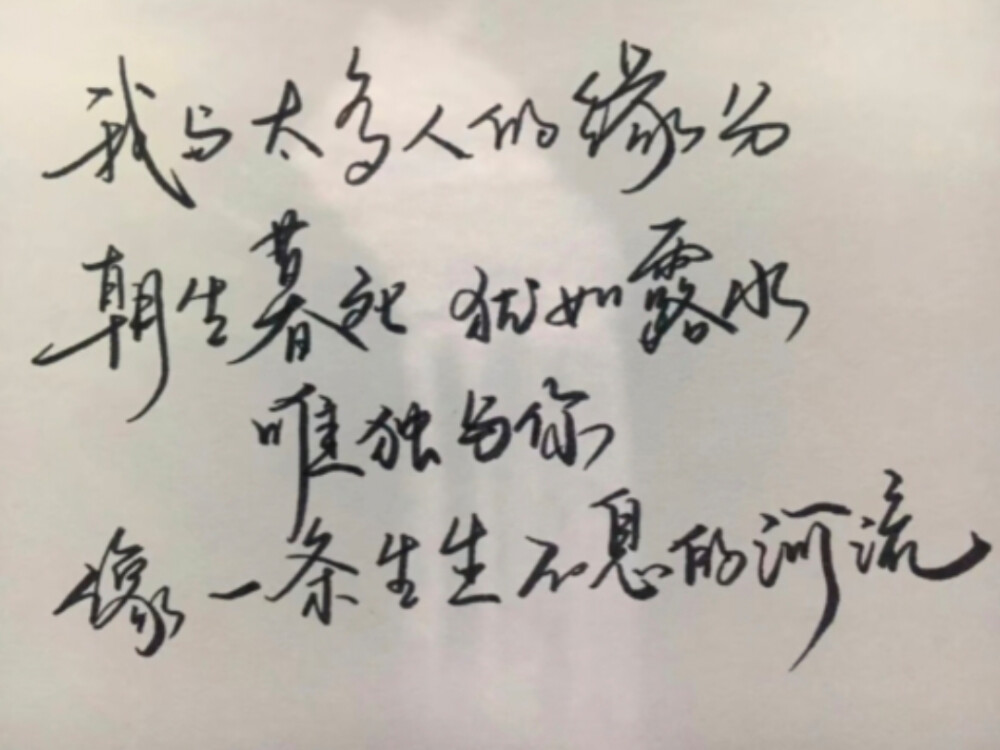 我与太多人的缘分
朝生暮死 犹如露水
唯独与你
像一条生生不息的河流